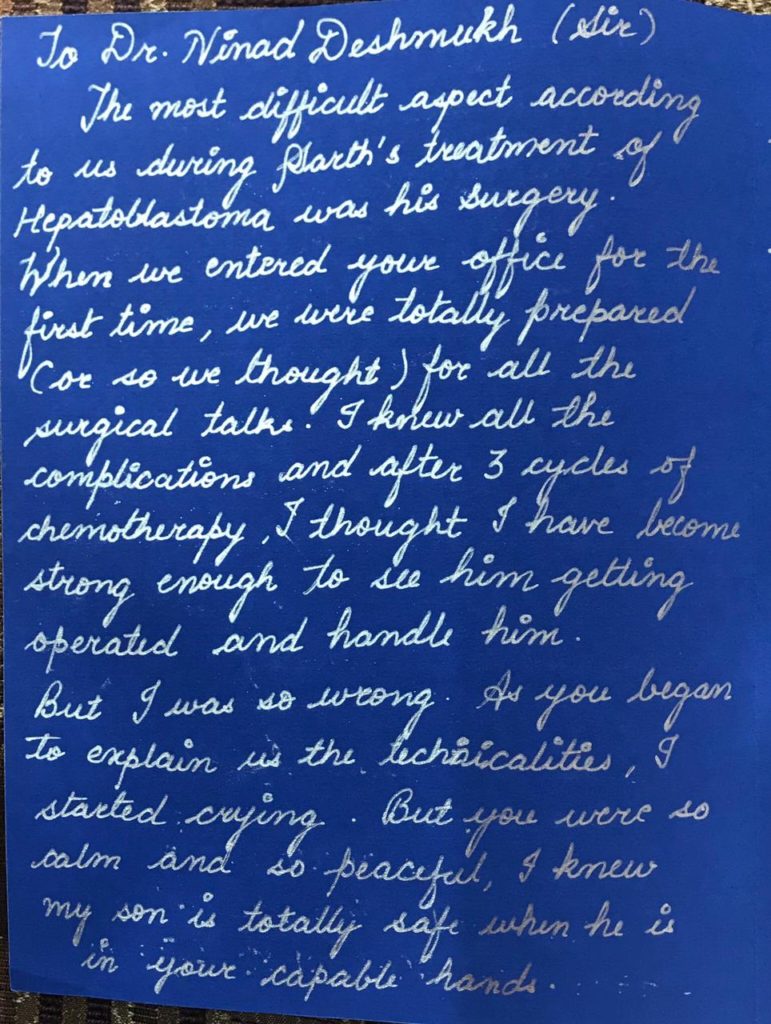 To Dr. Ninad Deshmukh (Sir)
The most difficult aspect according
to us during Parth's treatment of
Hepatoblastoma was his surgery.
When we entered your office for the
first time, we were totally prepared
(or so we thought) for all the
surgical talks. I knew all the
complications and after 3 cycles of
chemotherapy, I thought I have become
strong enough to see him getting
operated and handle him.
But I was so wrong. As you began
to explain us the technicalities, I
started crying. But you were so
calm and so peaceful, I knew
my son is totally safe when he is
in your capable hands.